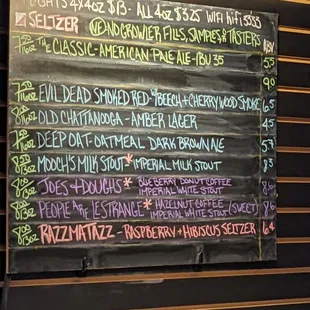 FLIGHTS 4X4OZ $13 - ALL 4OZ $3.25 WIFI hifi5555
SELTZER WE NO GROWLER FILLS, SAMPLES & TASTERS
ABV
THE CLASSIC-AMERICAN PALE ALE-IBU 35 5.5
EVIL DEAD SMOKED RED-W/BEECH+CHERRYWOOD SMOKE 6.5
OLD CHATTANOOGA-AMBER LAGER 4.5
DEEP OAT-OATMEAL DARK BROWN ALE 5.7
MOOCH'S MILK STOUT*IMPERIAL MILK STOUT 8.3
JOES+DOUGHS* BLUEBERRY DONUT COFFEE
IMPERIAL WHITE STOUT 8.6
PEOPLE ARE LESTRANGE* HAZELNUT COFFEE
IMPERIAL WHITE STOUT (SWEET) 8.6
RAZZMATAZZ-RASPBERRY+HIBISCUS SELTZER 6.4